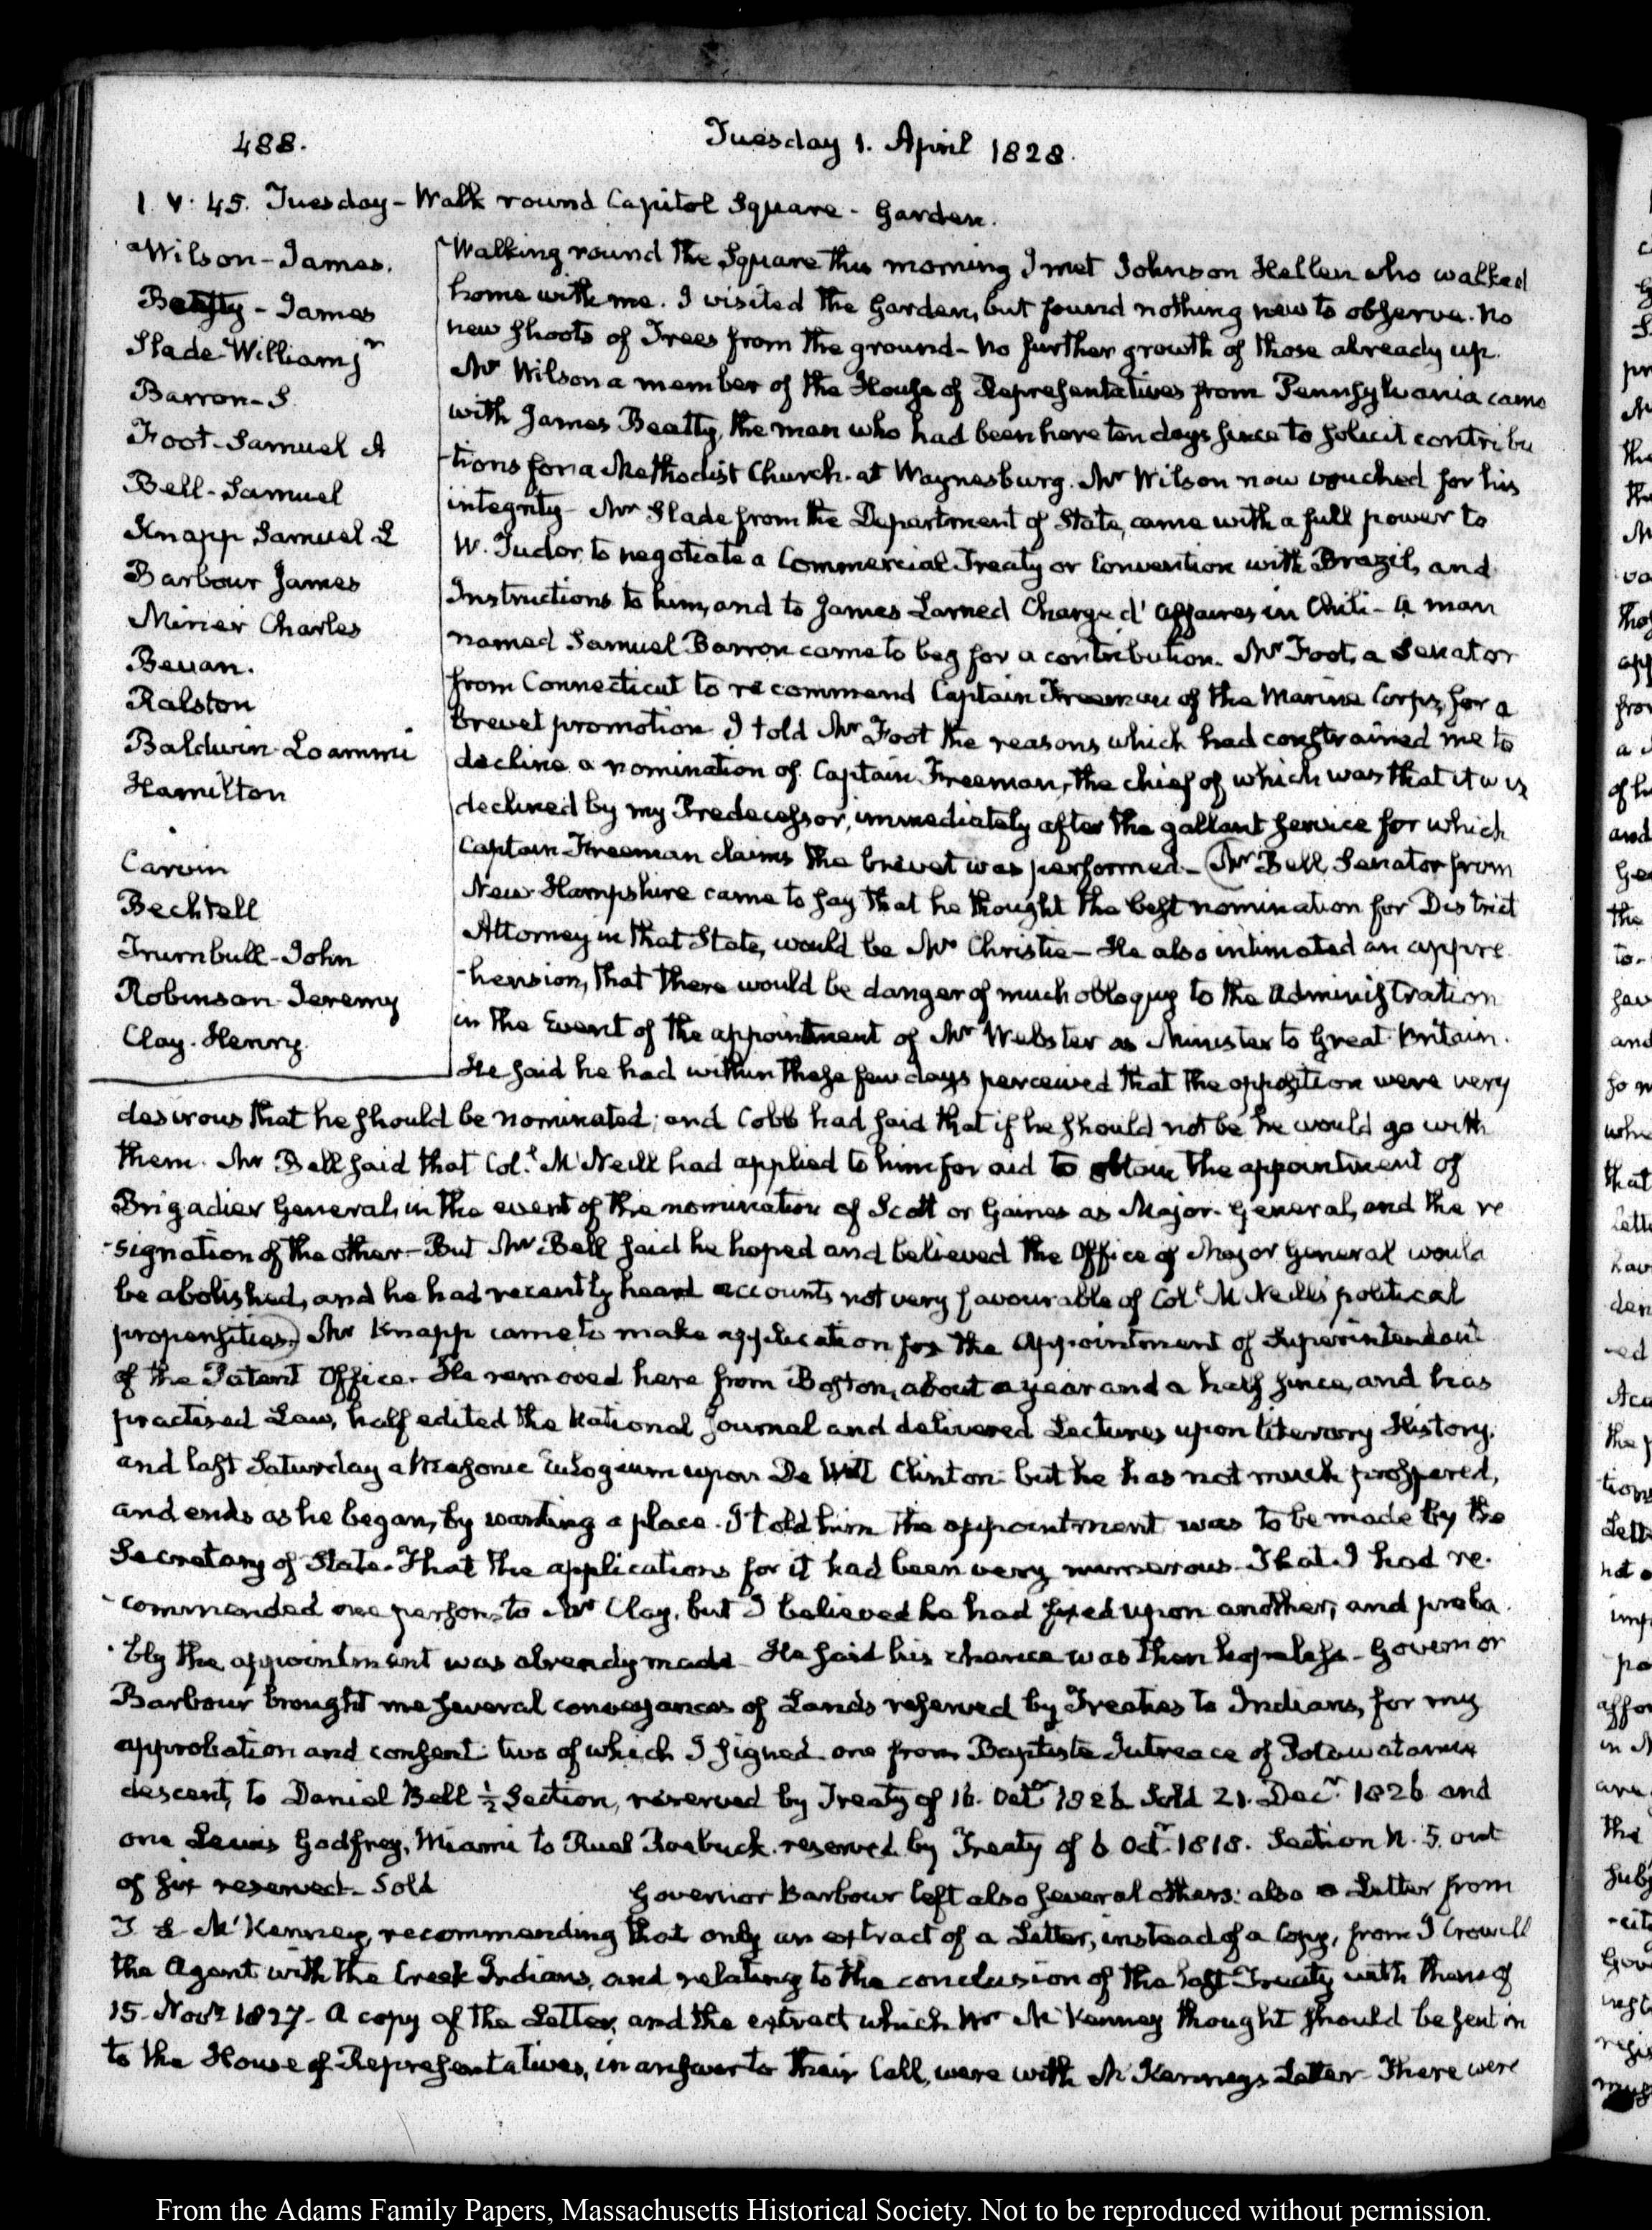 488.
Tuesday 1. April 1828.
1. V: 45. Tuesday - Walk round Capitol Square - Garden.
Wilson - James.
Beatty - James
Slade William jr
Barron - S
Foot - Samuel A
Bell - Samuel
Knapp Samuel L
Barbour James
Miner Charles
Bevan.
Ralston
Baldwin - Loammi
Hamilton
Carvin
Bechtell
Trumbull - John
Robinson - Jeremy
Clay - Henry.
Walking round the Square this morning I met Johnson Hellen who walked
home with me. I visited the Garden, but found nothing new to observe. No
new shoots of Trees from the ground - No further growth of those already up.
Mr Wilson a member of the House of Representatives from Pennsylvania came
with James Beatty, the man who had been here ten days since to solicit contribu
-tions for a Methodist Church at Waynesburg. Mr Wilson now vouched for his
integrity - Mr Slade from the Department of State, came with a full power to
W. Tudor, to negotiate a Commercial Treaty or Convention with Brazil, and
Instructions to him, and to James Larned Chargé d'Affaires in Chili - A man
named Samuel Barron came to beg for a contribution. Mr Foot, a Senator
from Connecticut to recommend Captain Freeman of the Marine Corps, for a
brevet promotion. I told Mr Foot the reasons which had constrained me to
decline a nomination of Captain Freeman, the chief of which was that it was
declined by my Predecessor, immediately after the gallant service for which
Captain Freeman claims the brevet was performed - (Mr Bell, Senator from
New Hampshire came to say that he thought the best nomination for District
Attorney in that State, would be Mr Christie - He also intimated an appre
-hension, that there would be danger of much obloquy to the Administration
in the Event of the appointment of Mr Webster as Minister to Great-Britain.
He said he had within these few days perceived that the opposition were very
desirous that he should be nominated; and Cobb had said that if he should not be he would go with
them. Mr Bell said that Col.l McNeill had applied to him for aid to obtain the appointment of
Brigadier General, in the event of the nomination of Scott or Gaines as Major-General, and the re
-signation of the other - But Mr Bell said he hoped and believed the Office of Major General would
be abolished, and he had recently heard accounts not very favourable of Col.l McNeill's political
propensities.) Mr Knapp came to make application for the Appointment of Superintendent
of the Patent Office. He removed here from Boston, about a year and a half since, and has
practised Law, half edited the National Journal and delivered Lectures upon literary History,
and last Saturday a Masonic Eulogium upon De Witt Clinton: but he has not much prospered,
and ends as he began, by wanting a place. I told him the appointment was to be made by the
Secretary of State. That the applications for it had been very numerous. That I had re-
-commended one person to Mr Clay, but I believed he had fixed upon another, and proba
-bly the appointment was already made - He said his chance was then hopeless - Governor
Barbour brought me several conveyances of Lands reserved by Treaties to Indians, for my
approbation and consent: two of which I signed one from Baptiste Jutreace of Potawatamie
descent, to Daniel Bell ½ Section, reserved by Treaty of 16. Octr 1826 Sold 21. Decr 1826 and
one Lewis Godfrey, Miami to Ruel Roebuck reserved by Treaty of 6 Octr 1818. Section N. 5 out
of six reserved - Sold
Governor Barbour left also several others: also a Letter from
T L McKenney, recommending that only an extract of a Letter, instead of a Copy, from J Crowell
the Agent with the Creek Indians, and relating to the conclusion of the last Treaty with them of
15. Novr 1827 - A copy of the Letter, and the extract which Mr McKenney thought should be sent in
to the House of Representatives, in answer to their Call, were with McKenney's Letter - There were
From the Adams Family Papers, Massachusetts Historical Society. Not to be reproduced without permission.